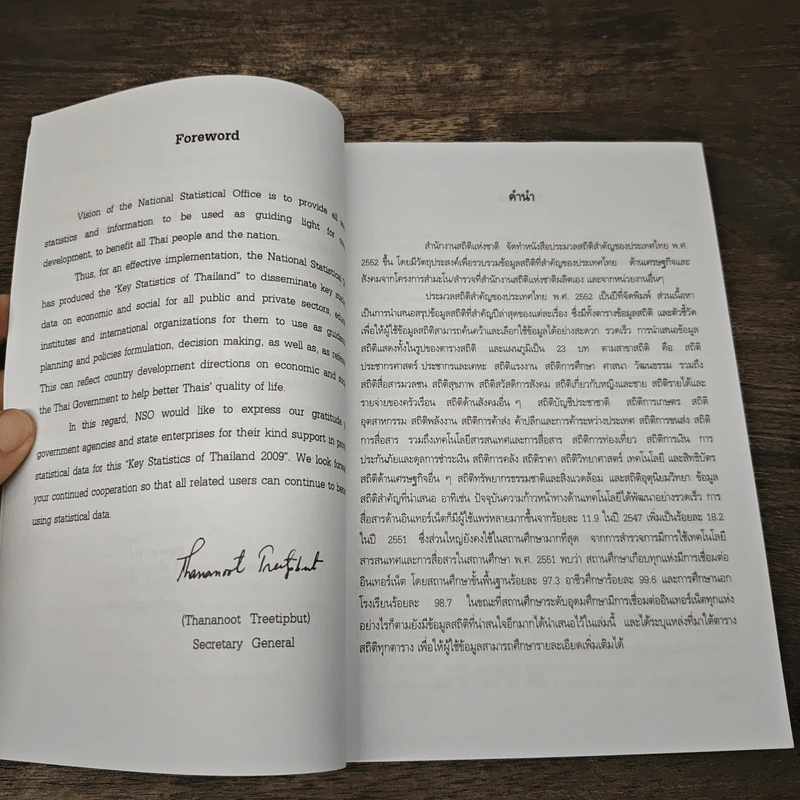 Foreword
Vision of the National Statistical Office is to provide all
statistics and information to be used as guiding light for
development, to benefit all Thai people and the nation.
Thus, for an effective implementation, the National Statistical
has produced the “Key Statistics of Thailand” to disseminate key
data on economic and social for all public and private sectors,
institutes and international organizations for them to use as
planning and policies formulation, decision making, as well as, as
This can reflect country development directions on economic and
the Thai Government to help better Thais’ quality of life.
In this regard, NSO would like to express our gratitude
government agencies and state enterprises for their kind support in
statistical data for this “Key Statistics of Thailand 2009”. We look
your continued cooperation so that all related users can continue to
using statistical data.
Thananoot Treetipbut
(Thananoot Treetipbut)
Secretary General
คำนำ
สำนักงานสถิติแห่งชาติ จัดทำหนังสือประมวลสถิติสำคัญของประเทศไทย พ.ศ.
2552 ขึ้น โดยมีวัตถุประสงค์เพื่อรวบรวมข้อมูลสถิติที่สำคัญของประเทศไทย ด้านเศรษฐกิจและ
สังคมจากโครงการสำมะโน/สำรวจที่สำนักงานสถิติแห่งชาติผลิตเอง และจากหน่วยงานอื่นๆ
ประมวลสถิติสำคัญของประเทศไทย พ.ศ. 2552 เป็นปีที่จัดพิมพ์ ส่วนเนื้อหา
เป็นการนำเสนอสรุปข้อมูลสถิติที่สำคัญปีล่าสุดของแต่ละเรื่อง ซึ่งมีทั้งตารางข้อมูลสถิติ และตัวชี้วัด
เพื่อให้ผู้ใช้ข้อมูลสถิติสามารถค้นคว้าและเลือกใช้ข้อมูลได้อย่างสะดวก รวดเร็ว การนำเสนอข้อมูล
สถิติแสดงทั้งในรูปของตารางสถิติ และแผนภูมิเป็น 23 บท ตามสาขาสถิติ คือ สถิติ
ประชากรศาสตร์ ประชากรและเคหะ สถิติแรงงาน สถิติการศึกษา ศาสนา วัฒนธรรม รวมถึง
สถิติสื่อสารมวลชน สถิติสุขภาพ สถิติสวัสดิการสังคม สถิติเกี่ยวกับหญิงและชาย สถิติรายได้และ
รายจ่ายของครัวเรือน สถิติด้านสังคมอื่น ๆ สถิติบัญชีประชาชาติ สถิติการเกษตร สถิติ
อุตสาหกรรม สถิติพลังงาน สถิติการค้าส่ง ค้าปลีกและการค้าระหว่างประเทศ สถิติการขนส่ง สถิติ
การสื่อสาร รวมถึงเทคโนโลยีสารสนเทศและการสื่อสาร สถิติการท่องเที่ยว สถิติการเงิน การ
ประกันภัยและดุลการชำระเงิน สถิติการคลัง สถิติราคา สถิติวิทยาศาสตร์ เทคโนโลยี และสิทธิบัตร
สถิติด้านเศรษฐกิจอื่น ๆ สถิติทรัพยากรธรรมชาติและสิ่งแวดล้อม และสถิติอุตุนิยมวิทยา ข้อมูล
สถิติสำคัญที่นำเสนอ อาทิเช่น ปัจจุบันความก้าวหน้าทางด้านเทคโนโลยีได้พัฒนาอย่างรวดเร็ว การ
สื่อสารด้านอินเทอร์เน็ตก็มีผู้ใช้แพร่หลายมากขึ้นจากร้อยละ 11.9 ในปี 2547 เพิ่มเป็นร้อยละ 18.2
ในปี 2551 ซึ่งส่วนใหญ่ยังคงใช้ในสถานศึกษามากที่สุด จากการสำรวจการมีการใช้เทคโนโลยี
สารสนเทศและการสื่อสารในสถานศึกษา พ.ศ. 2551 พบว่า สถานศึกษาเกือบทุกแห่งมีการเชื่อมต่อ
อินเทอร์เน็ต โดยสถานศึกษาขั้นพื้นฐานร้อยละ 97.3 อาชีวศึกษาร้อยละ 99.6 และการศึกษานอก
โรงเรียนร้อยละ 98.7 ในขณะที่สถานศึกษาระดับอุดมศึกษามีการเชื่อมต่ออินเทอร์เน็ตทุกแห่ง
อย่างไรก็ตามยังมีข้อมูลสถิติที่น่าสนใจอีกมากได้นำเสนอไว้ในเล่มนี้ และได้ระบุแหล่งที่มาใต้ตาราง
สถิติทุกตาราง เพื่อให้ผู้ใช้ข้อมูลสามารถศึกษารายละเอียดเพิ่มเติมได้